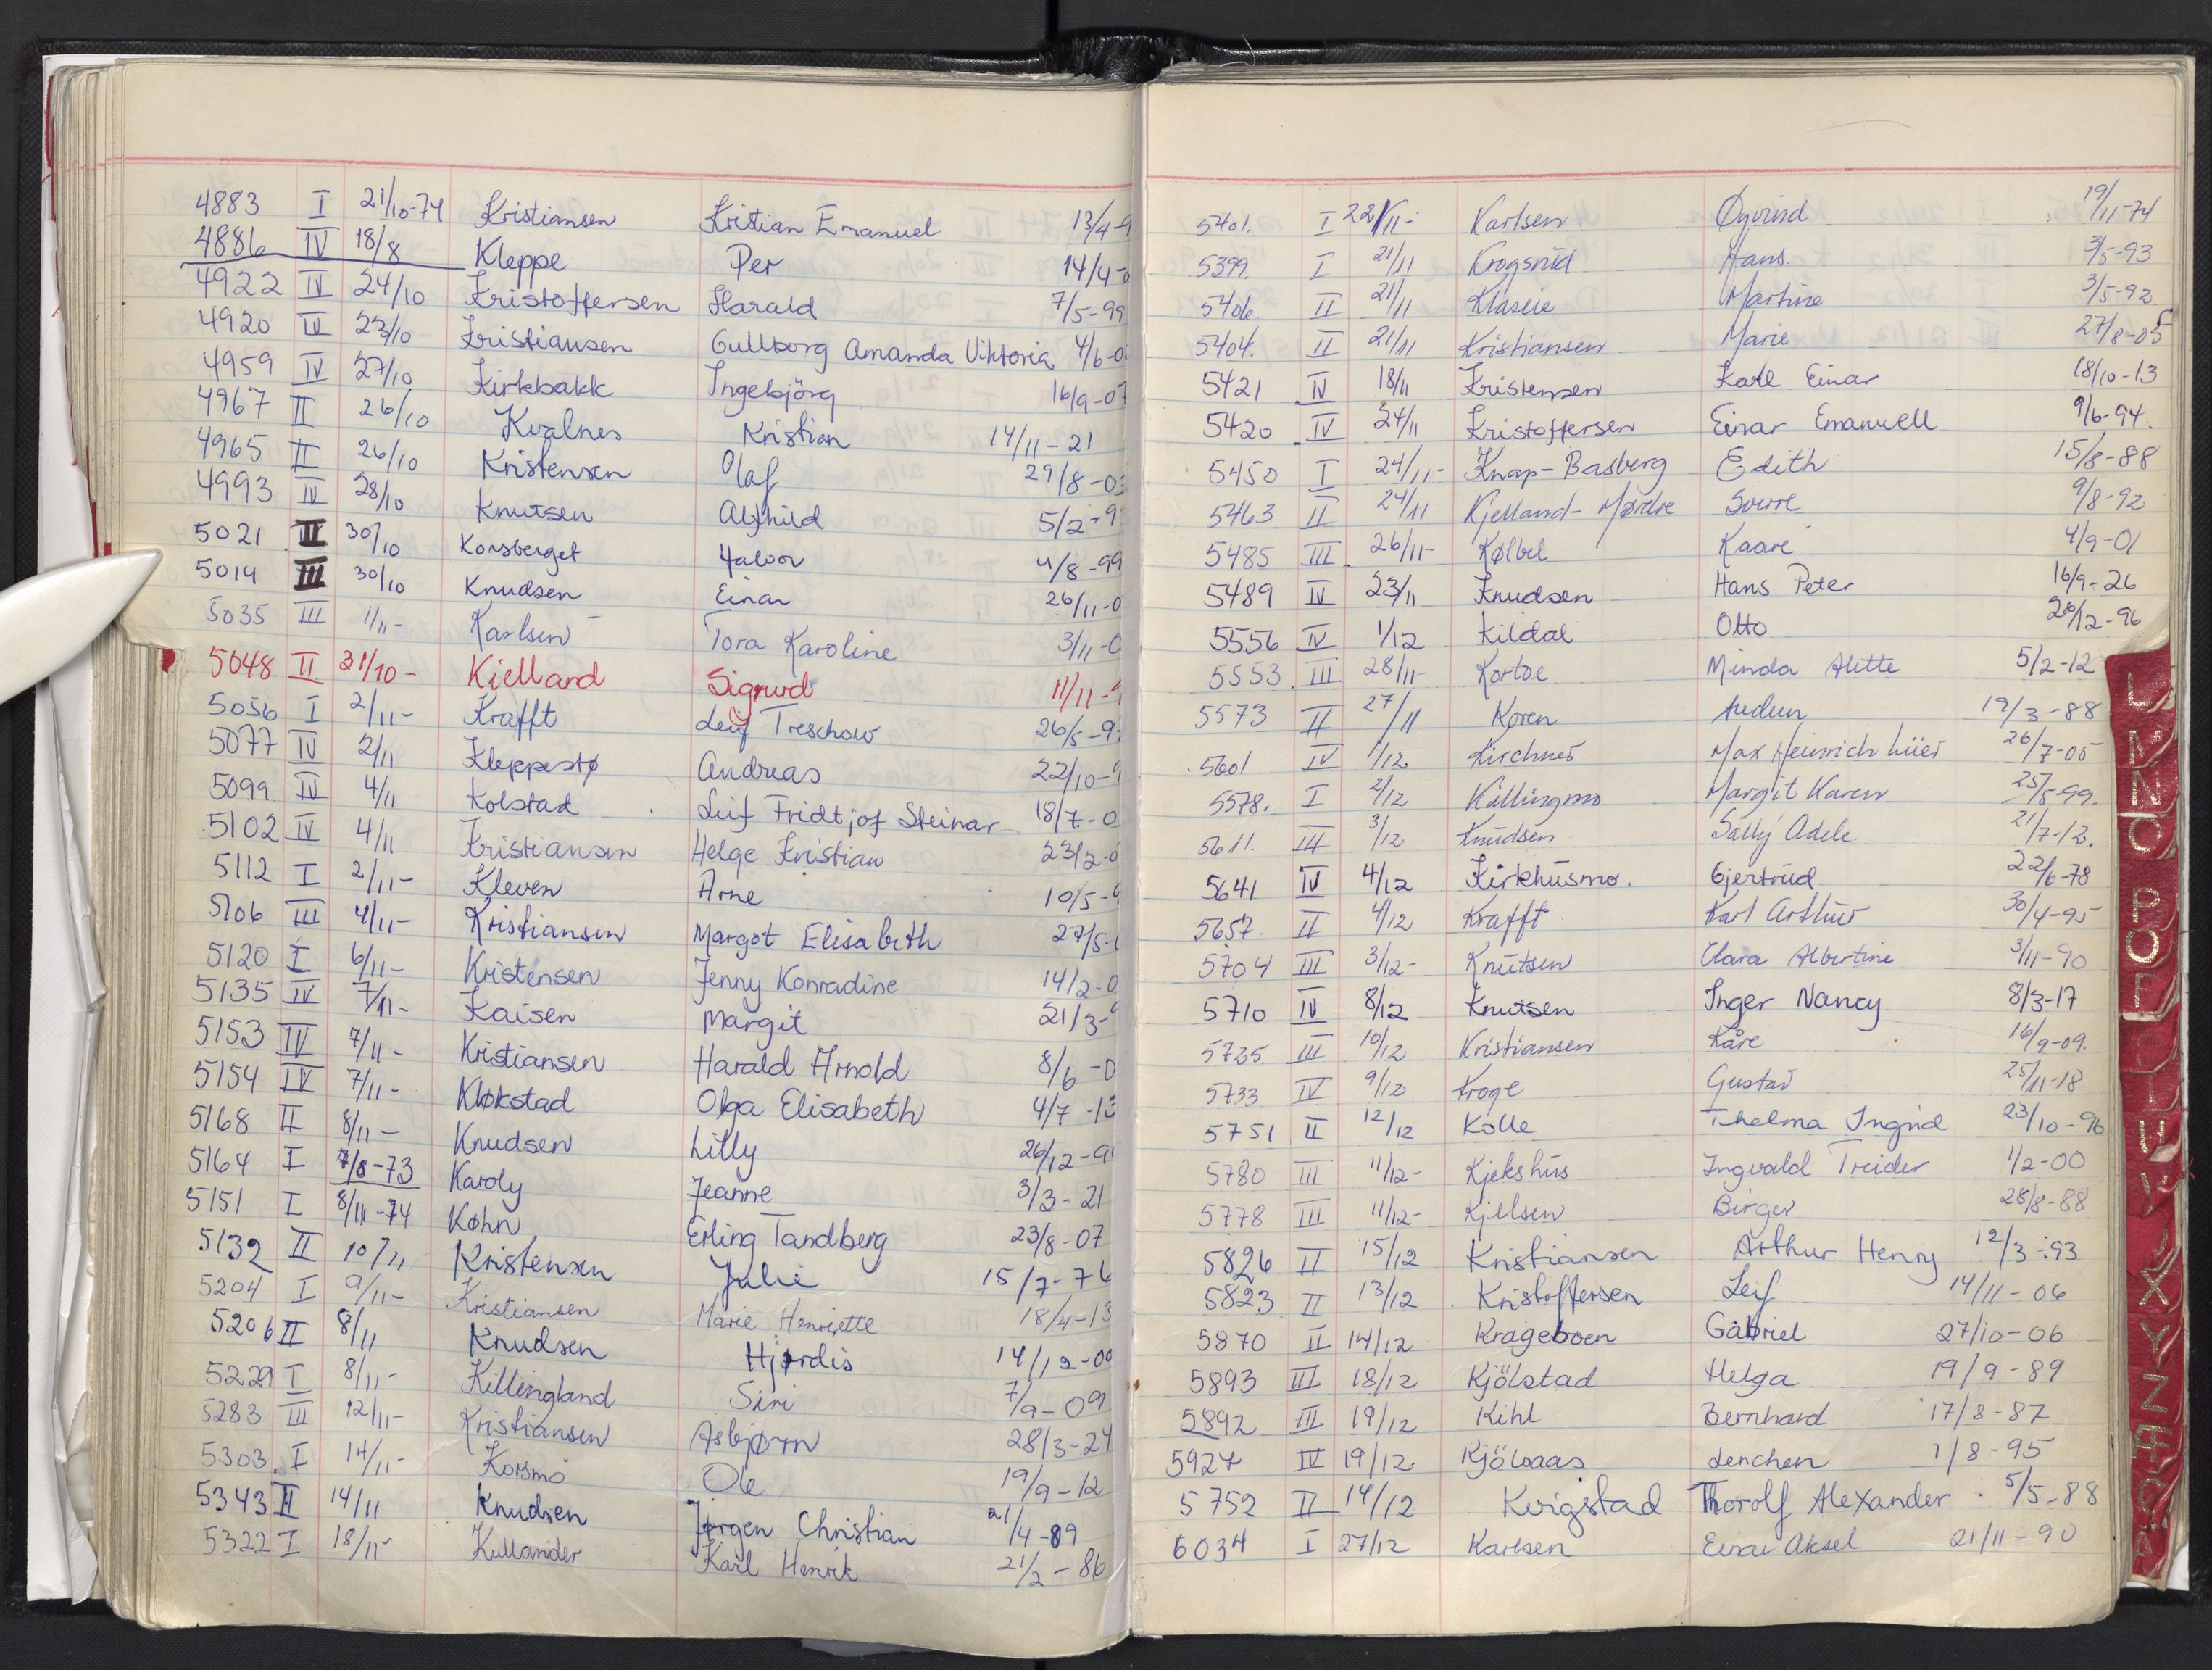 4883 I 21/10-74 Kristiansen Kristian Emanuel 13/4-9
4886 IV 18/8 Kleppe Per 14/4-0
4922 IV 24/10 Kristoffersen Harald 7/5-99
4920 IV 23/10 Kristiansen Gullborg Amanda Viktoria 4/6-0
4959 IV 27/10 Kirkbakk Ingebjörg 16/9-07
4967 II 26/10 Kvalnes Kristian 14/11-21
4965 II 26/10 Kristensen Olaf 29/8-03
4993 IV 28/10 Knutsen Alfhild 5/2-9
5021 II 30/10 Korsberget Halvor 4/8-99
5014 III 30/10 Knudsen Einar 26/11-0
5035 III 1/11- Karlsen Tora Karoline 3/11-0
5048 II 31/10- Kielland Sigrud 11/11-9
5056 I 2/11- Krafft Leif Treschow 26/5-9
5077 IV 2/11 Kleppestø Andreas 22/10-9
5099 IV 4/11 Kolstad Leif Fridtjof Steinar 18/7-0
5102 IV 4/11 Kristiansen Helge Kristian 23/2-0
5112 I 2/11- Kleven Arne 10/5-9
5106 III 4/11- Kristiansen Margot Elisabeth 27/5-
5120 I 6/11- Kristensen Jenny Konradine 14/2-0
5135 IV 7/11- Kaisen Margit 21/3-9
5153 IV 7/11- Kristiansen Harald Arnold 8/6-0
5154 IV 7/11- Kløkstad Olga Elisabeth 4/7-13
5168 II 8/11- Knudsen Lilly 26/12-9
5164 I 7/8-73 Karoly Jeanne 3/3-21
5151 I 8/11-74 Køhn Erling Tandberg 23/8-07
5132 II 10/11 Kristensen Julie 15/7-76
5204 I 9/11- Kristiansen Marie Henriette 18/4-13
5206 II 8/11 Knudsen Hjørdis 14/12-00
5229 I 8/11- Killingland Siri 7/9-09
5283 III 12/11- Kristiansen Asbjørn 28/3-24
5303. I 14/11- Korsmo Ole 19/9-12
5343 II 14/11 Knudsen Jørgen Christian 21/4-89
5322 I 18/11- Kullander Karl Henrik 21/2-86
5401. I 22/11- Karlsen Øyvind 19/11-74
5399. I 21/11 Krogsrud Hans. 3/5-93
5406. II 21/11 Klaseie Martine 3/5-92
5404. II 21/11 Kristiansen Marie 27/8-05
5421 IV 18/11 Kristensen Karl Einar 18/10-13
5420 IV 24/11 Kristoffersen Einar Emanuell 9/6-94.
5450 I 24/11- Knap-Basberg Edith 15/8-88
5463 II 24/11 Kjelland-Mørdre Sverre 9/8-92
5485 III 26/11- Kølbel Kaare 4/9-01
5489 IV 23/11 Knudsen Hans Peter 16/9-26
5556 IV 1/12 Kildal Otto 20/12-96
5553. III 28/11- Kortoe Minda Alette 5/2-12
5573 II 27/11 Koren Audun 19/3-88
5601 IV 1/12 Kirchner Max Heinrich 26/7-05
5578. I 2/12 Killingmo Margit Karen 25/5-99.
5611. III 3/12 Knudsen Sally Adele. 21/7-12.
5641 IV 4/12 Kirkhusmo. Gjertrud 22/6-78
5657. II 4/12 Krafft Karl Arthur 30/4-95
5704 III 3/12- Knutsen Clara Albertine 3/11-90
5710 IV 8/12 Knutsen Inger Nancy 8/3-17
5725 III 10/12 Kristiansen Kåre 16/9-09.
5733 IV 9/12 Kroge Gustav 25/11-18
5751 II 12/12 Kolle Thelma Ingrid 23/10-96
5780 III 11/12- Kjekshus Ingvald Treider 1/2-00
5778 III 11/12- Kjellsen Birger 28/8-88
5826 II 15/12 Kristiansen Arthur Henry 12/3-93
5823 II 13/12 Kristoffersen Leif 14/11-06
5870 II 14/12 Krageboen Gabriel 27/10-06
5893 III 18/12 Kjölstad Helga 19/9-89
5892 III 19/12 Kihl Bernhard 17/8-87
5927 IV 19/12 Kjölaas Lenchen 1/8-95
5752 II 14/12 Kvigstad Thorolf Alexander 5/5-88
6034 I 27/12 Karlsen Einar Aksel 21/11-90
L
M
N
O
P
Q
X
Y
Z
Æ
Ø